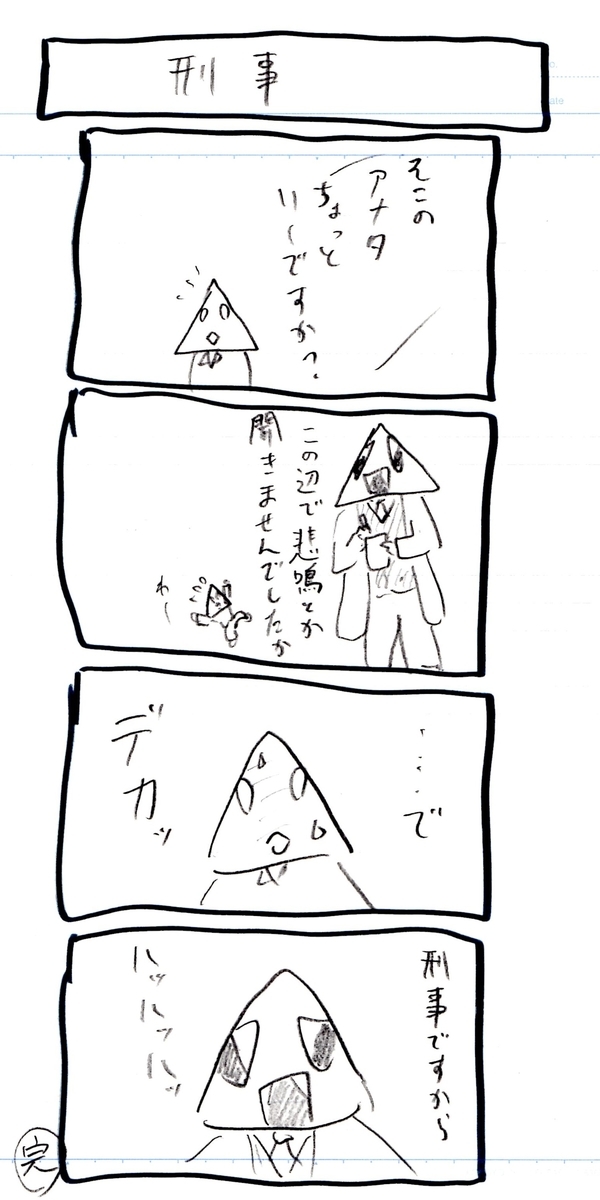 刑事
そこの
アナタ
ちょっと
いーですか?
この辺で悲鳴とか
聞きませんでしたか
わー
……で
デカッ
刑事ですから
ハッハッハッ
完